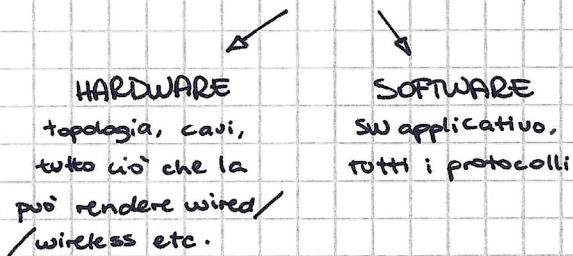 HARDWARE
topologia, cavi,
tutto ciò che la
può rendere wired/
/wireless etc.
SOFTWARE
SW applicativo,
tutti i protocolli